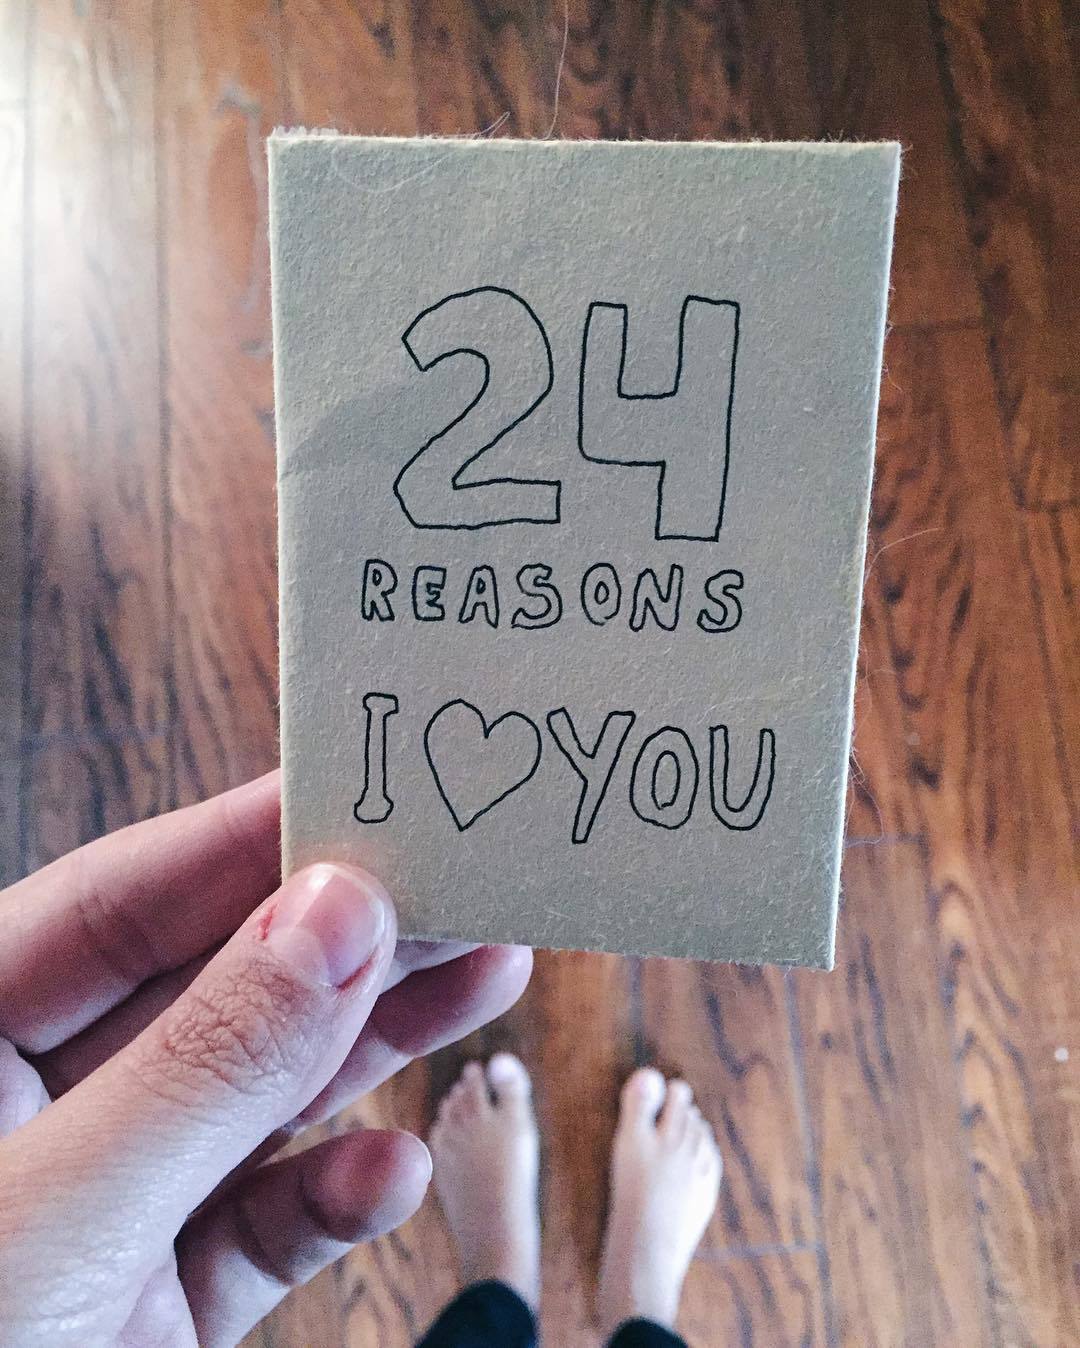 24
REASONS
I ♥ YOU